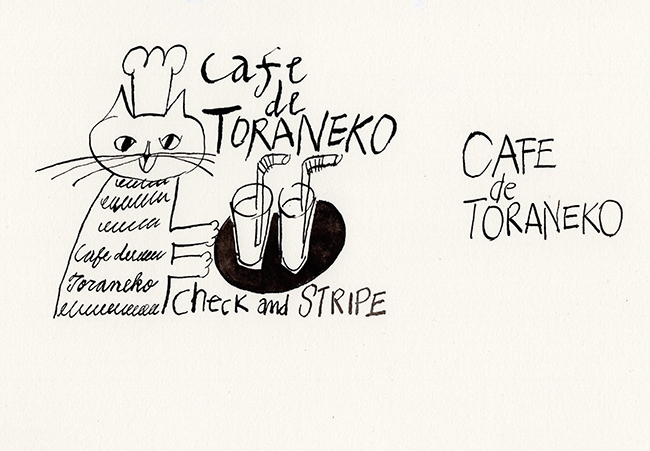 Cafe
de
TORANEKO
Cafe de
Toraneko
Check and STRIPE
CAFE
de
TORANEKO